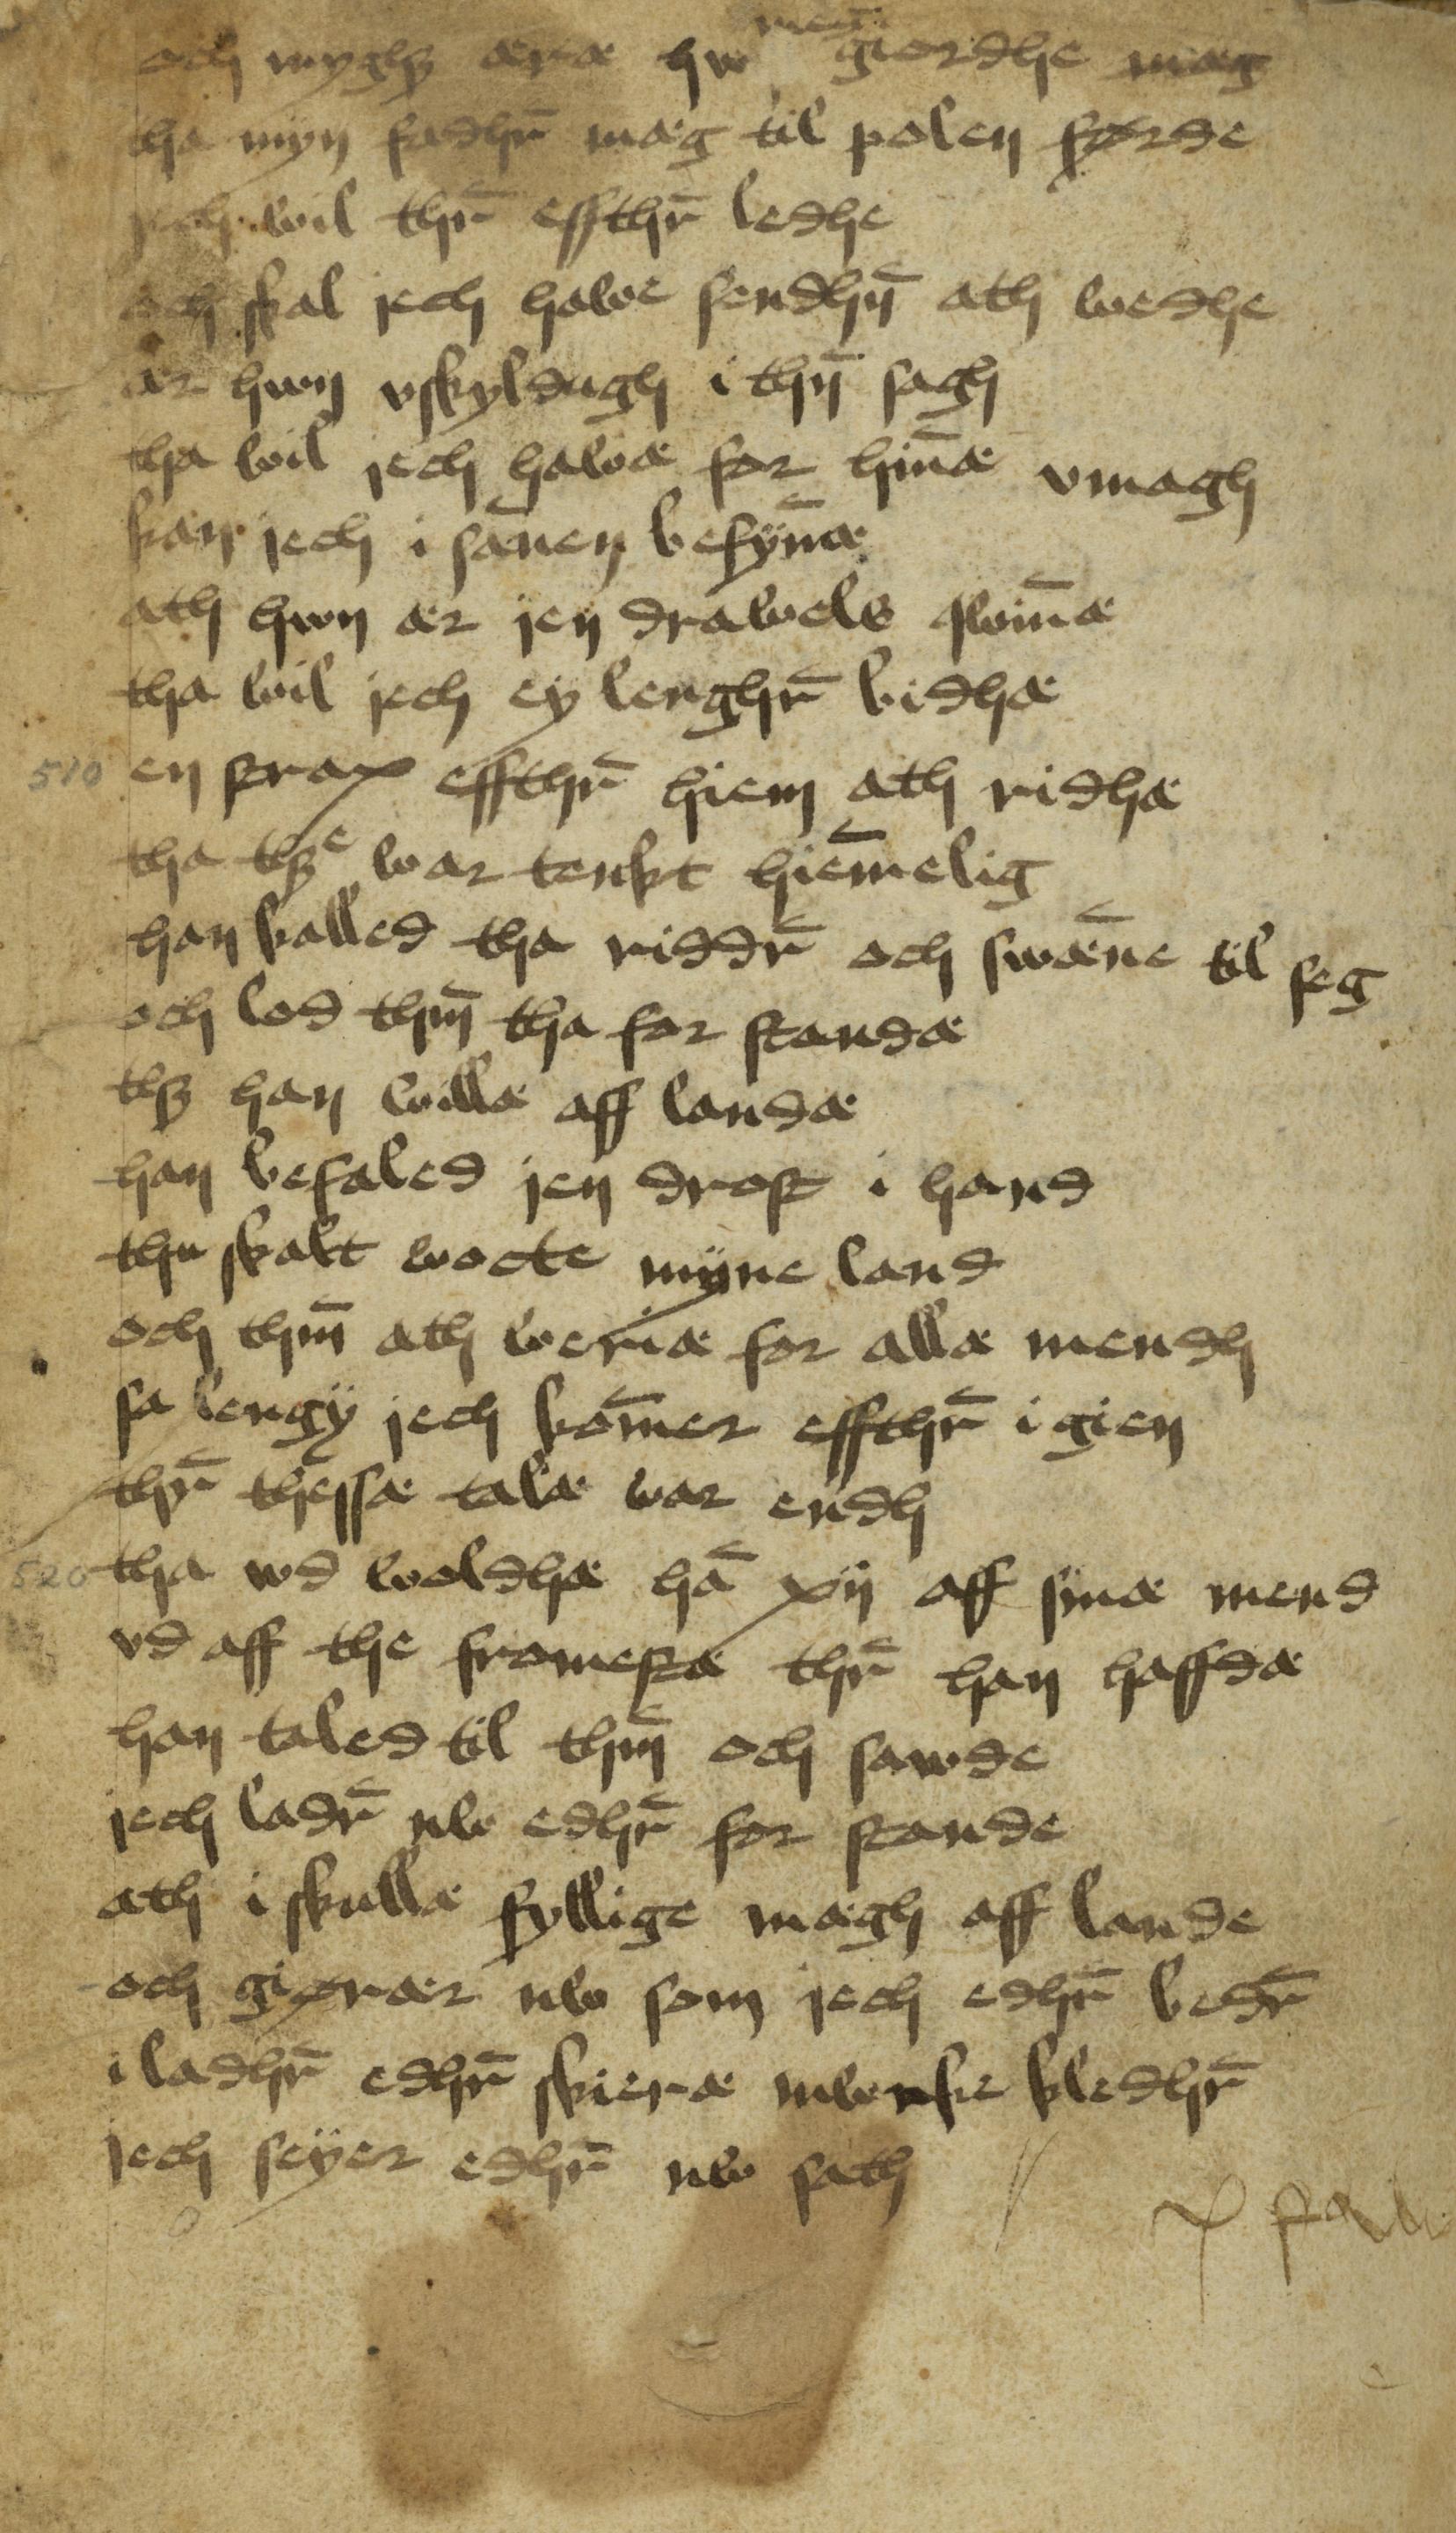 och myghꝫ æræ hw men giordhe mæg
tha myn fadhr̄ mæg til polen førde
jech wil thr̄ effthr̄ ledhe
och skal jech hawe sendhn̄ ath wedhe
ær hwn vskyldugh i thn̄ sagh
tha wil jech hawæ for hin̄æ vmagh
kan jech i san̄en befyn̄æ
ath hwn ær jen drawels qwin̄æ
tha wil jech ey lenghr̄ bidhæ
510 en strax effthr̄ hiem ath ridhæ
tha thꝫe war tenkt hiem̄elig
han kalled tha riddr̄ och swæn̄e til seg
och lod thm̄ tha for standæ
thꝫ han willæ aff landæ
han befaled jen drost i hand
thu skalt wocte myne land
och thm̄ ath weriæ for allæ mendh
sa lengy jech kom̄er effthr̄ i gien
thr̄ thessæ talæ war endh
520 tha wd woldhæ hā xij aff sinæ mend
vd aff the fromestæ thr̄ han haffdæ
han taled til thm̄ och sawde
jech ladr̄ nw edhr̄ for stande
ath i skullæ fyllige mægh aff lande
och giører nw som jech edhr̄ bedr̄
i ladhr̄ edhr̄ skieræ mwnke kledhr̄
jech seyer edhr̄ nw sath